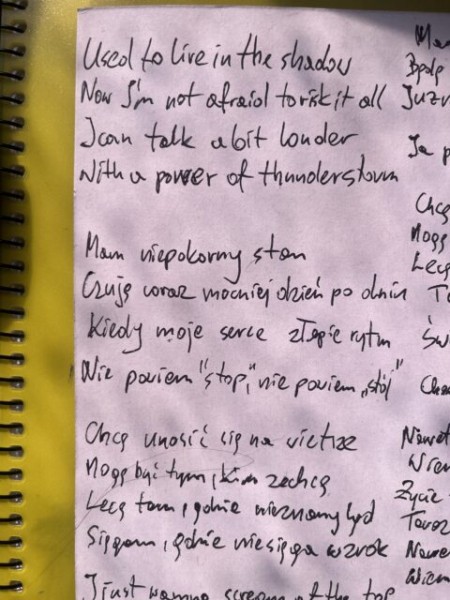 Used to live in the shadow
Now I'm not afraid to risk it all
I can talk a bit louder
With a power of thunderstorm
Mam niepokorny stan
Czuję coraz mocniej dzień po dniu
Kiedy moje serce złapie rytm
Nie powiem "stop," nie powiem „stój"
Chcę unosić się na wietrze
Mogę być tym, kim zechcę
Lecę tam, gdzie nieznany ląd
Sięgam, gdzie nie sięga wzrok
I just wanna scream at the top
Ja p
Chcę
Mogę
Lecę
Nawet
Życie
Teraz
Nawet
Wiem